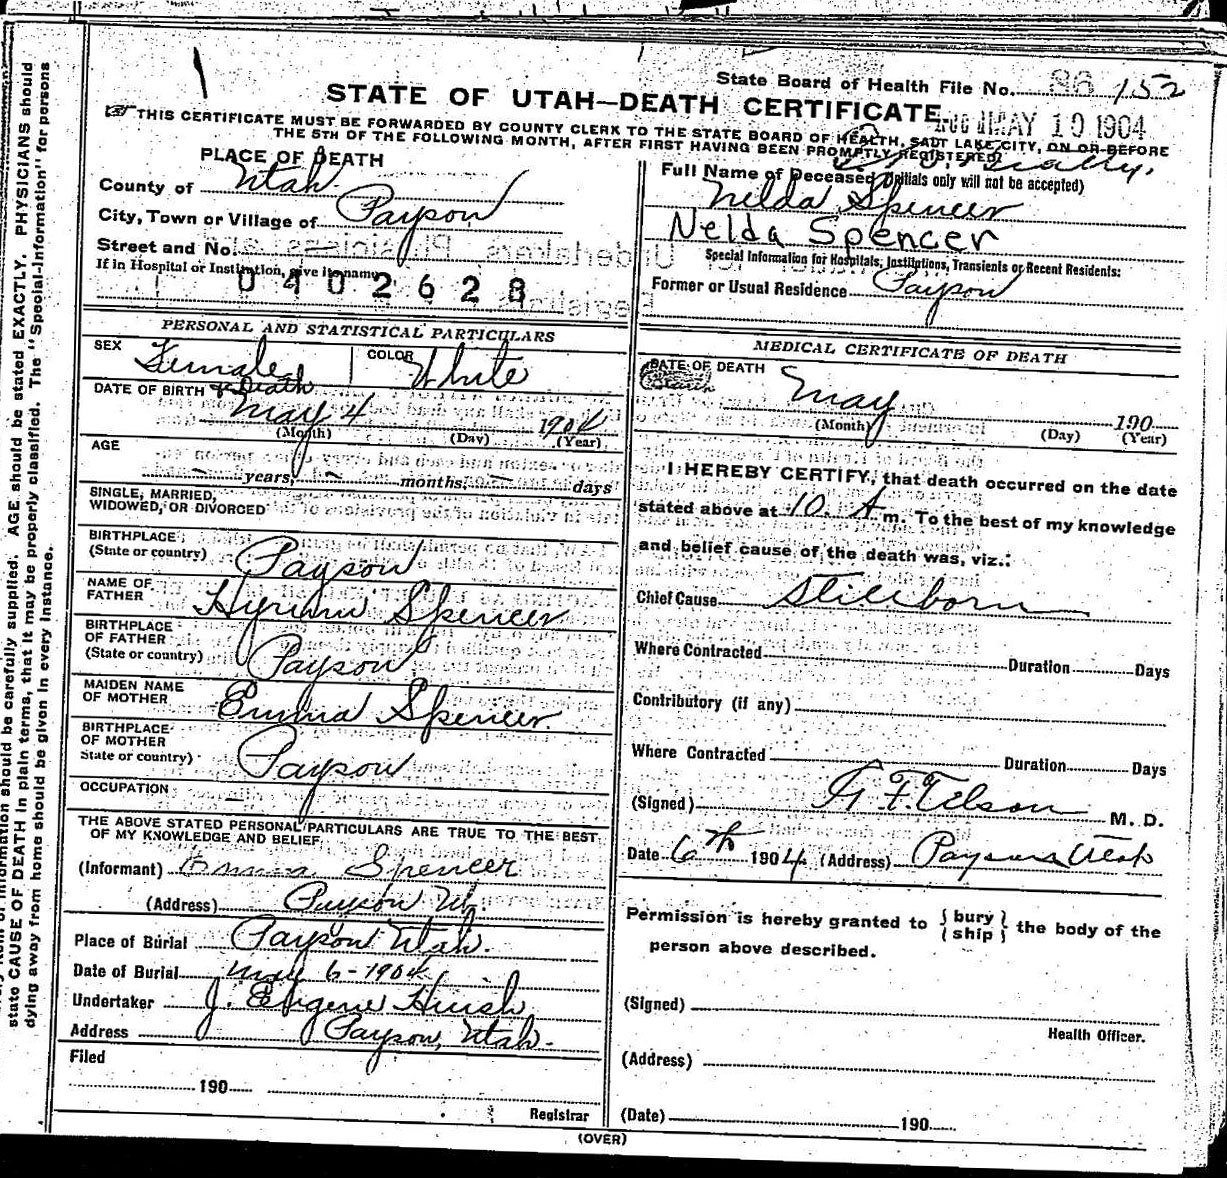 State Board of Health File No. 86 152
STATE OF UTAH—DEATH CERTIFICATE.
MAY 10 1904
THIS CERTIFICATE MUST BE FORWARDED BY COUNTY CLERK TO THE STATE BOARD OF HEALTH, SALT LAKE CITY, ON OR BEFORE
THE 5TH OF THE FOLLOWING MONTH, AFTER FIRST HAVING BEEN PROMPTLY REGISTERED.
PLACE OF DEATH
County of Utah
City, Town or Village of Payson
Street and No.
If in Hospital or Institution, give its name
0402628
Full Name of Deceased (Initials only will not be accepted)
Nelda Spencer
Nelda Spencer
Special Information for Hospitals, Institutions, Transients or Recent Residents:
Former or Usual Residence Payson
PERSONAL AND STATISTICAL PARTICULARS
SEX Female COLOR White
DATE OF BIRTH & Death
May 4 1904
(Month) (Day) (Year)
AGE
years, months, days
SINGLE, MARRIED,
WIDOWED, OR DIVORCED
BIRTHPLACE
(State or country) Payson
NAME OF
FATHER Hyrum Spencer
BIRTHPLACE
OF FATHER
(State or country) Payson
MAIDEN NAME
OF MOTHER Emma Spencer
BIRTHPLACE
OF MOTHER
State or country) Payson
OCCUPATION
THE ABOVE STATED PERSONAL PARTICULARS ARE TRUE TO THE BEST
OF MY KNOWLEDGE AND BELIEF
(Informant) Emma Spencer
(Address) Payson Ut
Place of Burial Payson Utah.
Date of Burial May 6-1904
Undertaker J. Eugene Huish
Address Payson, Utah.
Filed
190
Registrar
MEDICAL CERTIFICATE OF DEATH
DATE OF DEATH
May 190
(Month) (Day) (Year)
I HEREBY CERTIFY, that death occurred on the date
stated above at 10 A m. To the best of my knowledge
and belief cause of the death was, viz.:
Chief Cause Stillborn
Where Contracted Duration Days
Contributory (if any)
Where Contracted Duration Days
(Signed) M. D.
Date 6th 1904 (Address) Payson Utah
Permission is hereby granted to { bury } the body of the
{ ship }
person above described.
(Signed)
Health Officer.
(Address)
(Date) 190
(OVER)
information should be carefully supplied. AGE should be stated EXACTLY. PHYSICIANS should
state CAUSE OF DEATH in plain terms, that it may be properly classified. The "Special Information" for persons
dying away from home should be given in every instance.